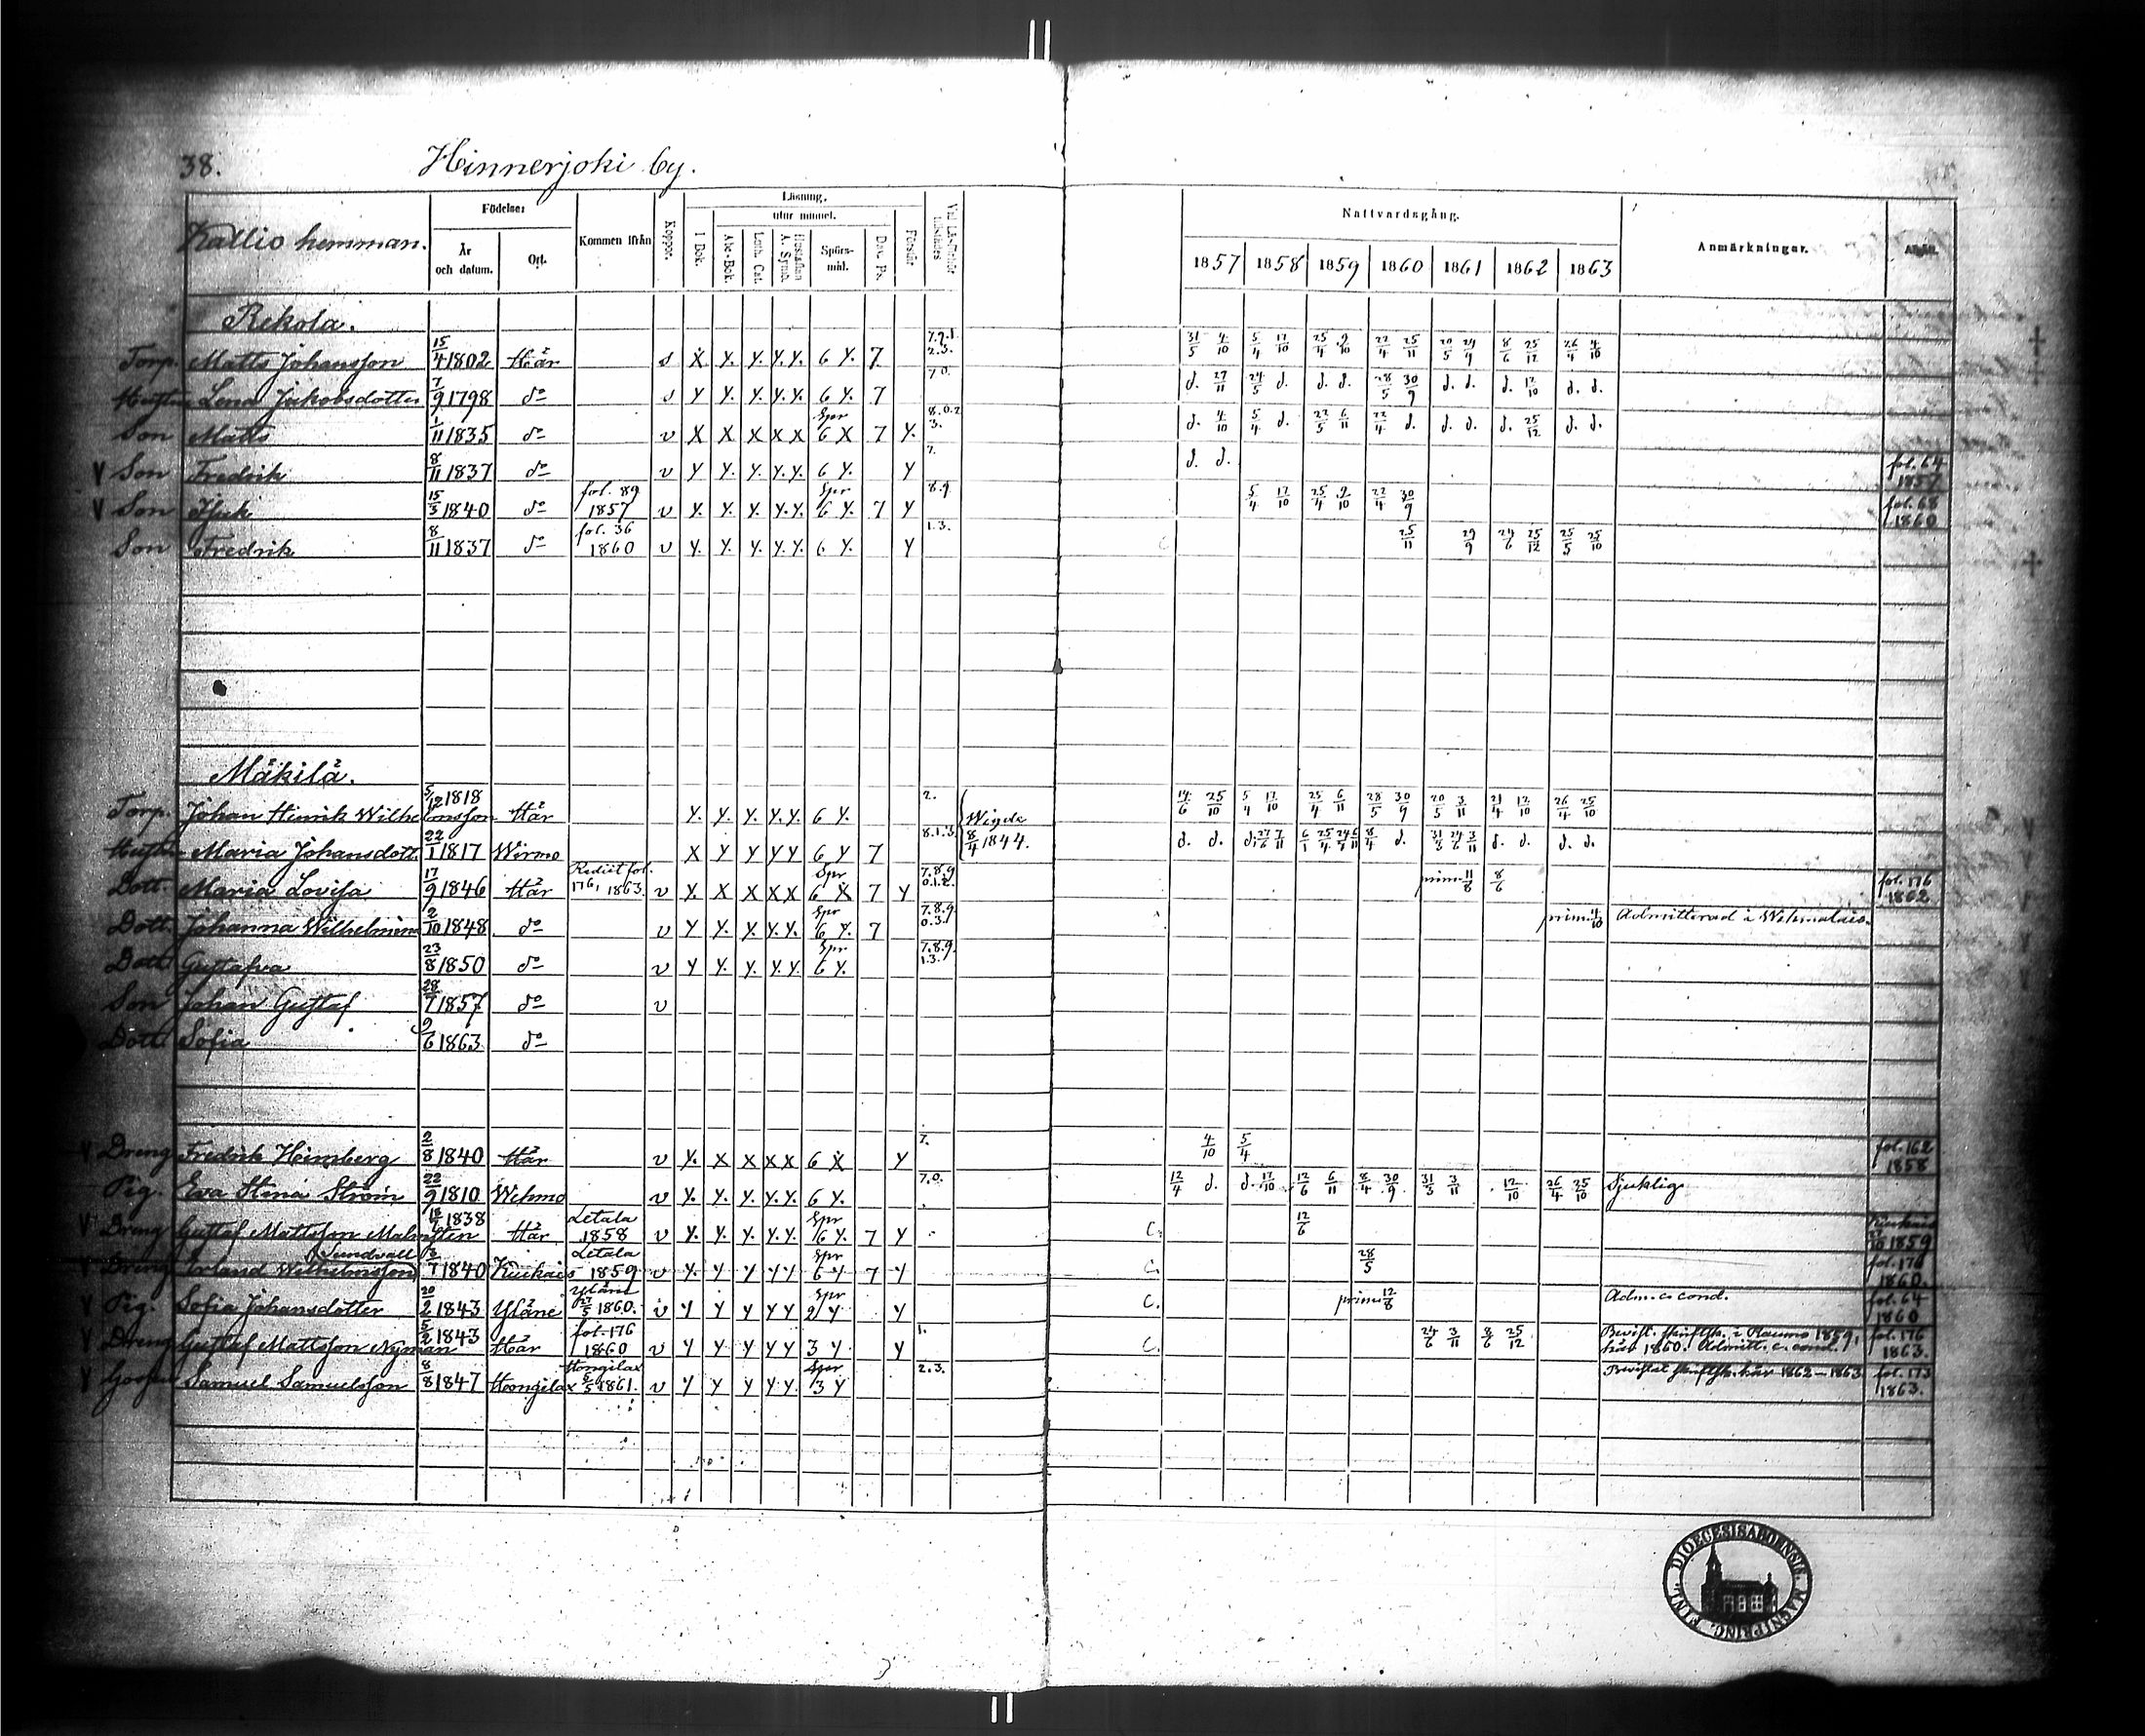 38.
Hinnerjoki by.
Kallio hemman.
Födelse: År och datum. Ort. Kommen ifrån Koppor. Läsning. I Bok. utur minnet. Abc-Bok. Luth. Cat. Hustaflan A. Symb. Spörsmål. Dav. Ps. Förstår Nattvardsgång. 1857 1858 1859 1860 1861 1862 1863 Anmärkningar. Afgått.
Rekola.
Torp. Matts Johansson 15/4 1802 Här s X y. y. y. y. 6 y. 7 7.9.1. 2.3. 31/5 4/10 5/4 17/10 25/4 9/10 22/4 25/11 20/5 29/9 8/6 25/12 26/4 4/10
Hustru Lena Jakobsdotter 7/9 1798 do s y y. y. y. y. 6 y. 7 7 0. d. 27/11 24/5 d. d. d. 28/5 30/9 d. d. d. 12/10 d. d.
Son Matts 1/11 1835 do v X X X X X Spr 6 X 7 y. 8.0.2 3. d. 4/10 5/4 d. 22/5 6/11 22/4 d. d. d. d. 25/12 d. d.
v Son Fredrik 8/11 1837 do v y y. y. y. y. 6 y. y 7. d. d. fol. 64 1857
v Son Isak 15/5 1840 do fol. 89 1857 v y. y. y. y. y. Spr 6 y. 7 y 8.9 5/4 17/10 25/4 9/10 22/4 30/9 fol. 68 1860
Son Fredrik 8/11 1837 do fol. 36 1860 v y. y. y. y. y. 6 y. y 1.3. 25/11 29/9 24/6 25/12 25/5 25/10
Mäkilä.
Torp. Johan Henrik Wilhelmsson 5/12 1818 Här y. y. y. y. y. 6 y. 2. Wigde 8/4 1844. 14/6 25/10 5/4 17/10 25/4 6/11 28/5 30/9 20/5 3/11 21/4 12/10 26/4 25/10
Hustru Maria Johansdott. 22/1 1817 Wirmo X y y y y 6 y 7 8.1.3. d. d. d. 27/6 7/11 6/1 25/4 8/4 d. 31/3 24/6 3/11 d. d. d. d.
Dott. Maria Lovisa 17/9 1846 Här Rediit fol. 176, 1863. v y. X X X X Spr 6 X 7 y 7.8.9 0.1.2. prim. 11/8 8/6 fol. 176 1862
Dott. Johanna Wilhelmina 2/10 1848 do v y y. y. y. y. Spr 6 y. 7 7.8.9. 0.3. prim. 4/10 Admitterad i Wehmalais.
Dott. Gustafva 23/8 1850 do v y y. y. y. y. Spr 6 y. 7.8.9. 1.3.
Son Johan Gustaf 28/7 1857 do v
Dott. Sofia 9/6 1863 do
v Dreng Fredrik Heimberg 2/8 1840 Här v y. X X X X 6 X y 7. 4/10 5/4 fol. 162 1858
Pig. Eva Stina Ström 22/9 1810 Wehmo v y. y. y. y. y. 6 y. 7.0. 12/4 d. d. 17/10 12/6 6/11 8/4 30/9 31/3 3/11 12/10 26/4 25/10 Sjuklig
v Dreng Gustaf Mattsson Malmsten 1838 Här Letala 1858 v y. y. y. y. y. Spr 6 y. 7 y C. 12/6 1859
v Dreng Erland Wilhelmsson Sundvall 3/7 1840 Kiukais Letala 1859 v y. y y y y Spr 6 y 7 y C. 28/5 fol. 176 1860.
v Pig. Sofia Johansdotter 20/2 1843 Yläne Yläne 27/5 1860. v y y y y y Spr 2 y y C. prim. 12/8 Adm. c. cond. fol. 64 1860
v Dreng Gustaf Mattsson Nyman 5/2 1843 Här fol. 176 1860 v y y y y y 3 y y 1. C. 24/6 3/11 8/6 25/12 Bevist. skriftsk. i Raumo 1859, här 1860. Admitt. c. cond. fol. 176 1863.
v Gossen Samuel Samuelsson 8/8 1847 Hongilax Hongilax 5/5 1861. v y y y y y Spr 3 y 2.3. Bevistat skriftsk. här 1862–1863 fol. 173 1863.
DIOECESIS ABOENSIS. MAGNI PRINC. FINL.